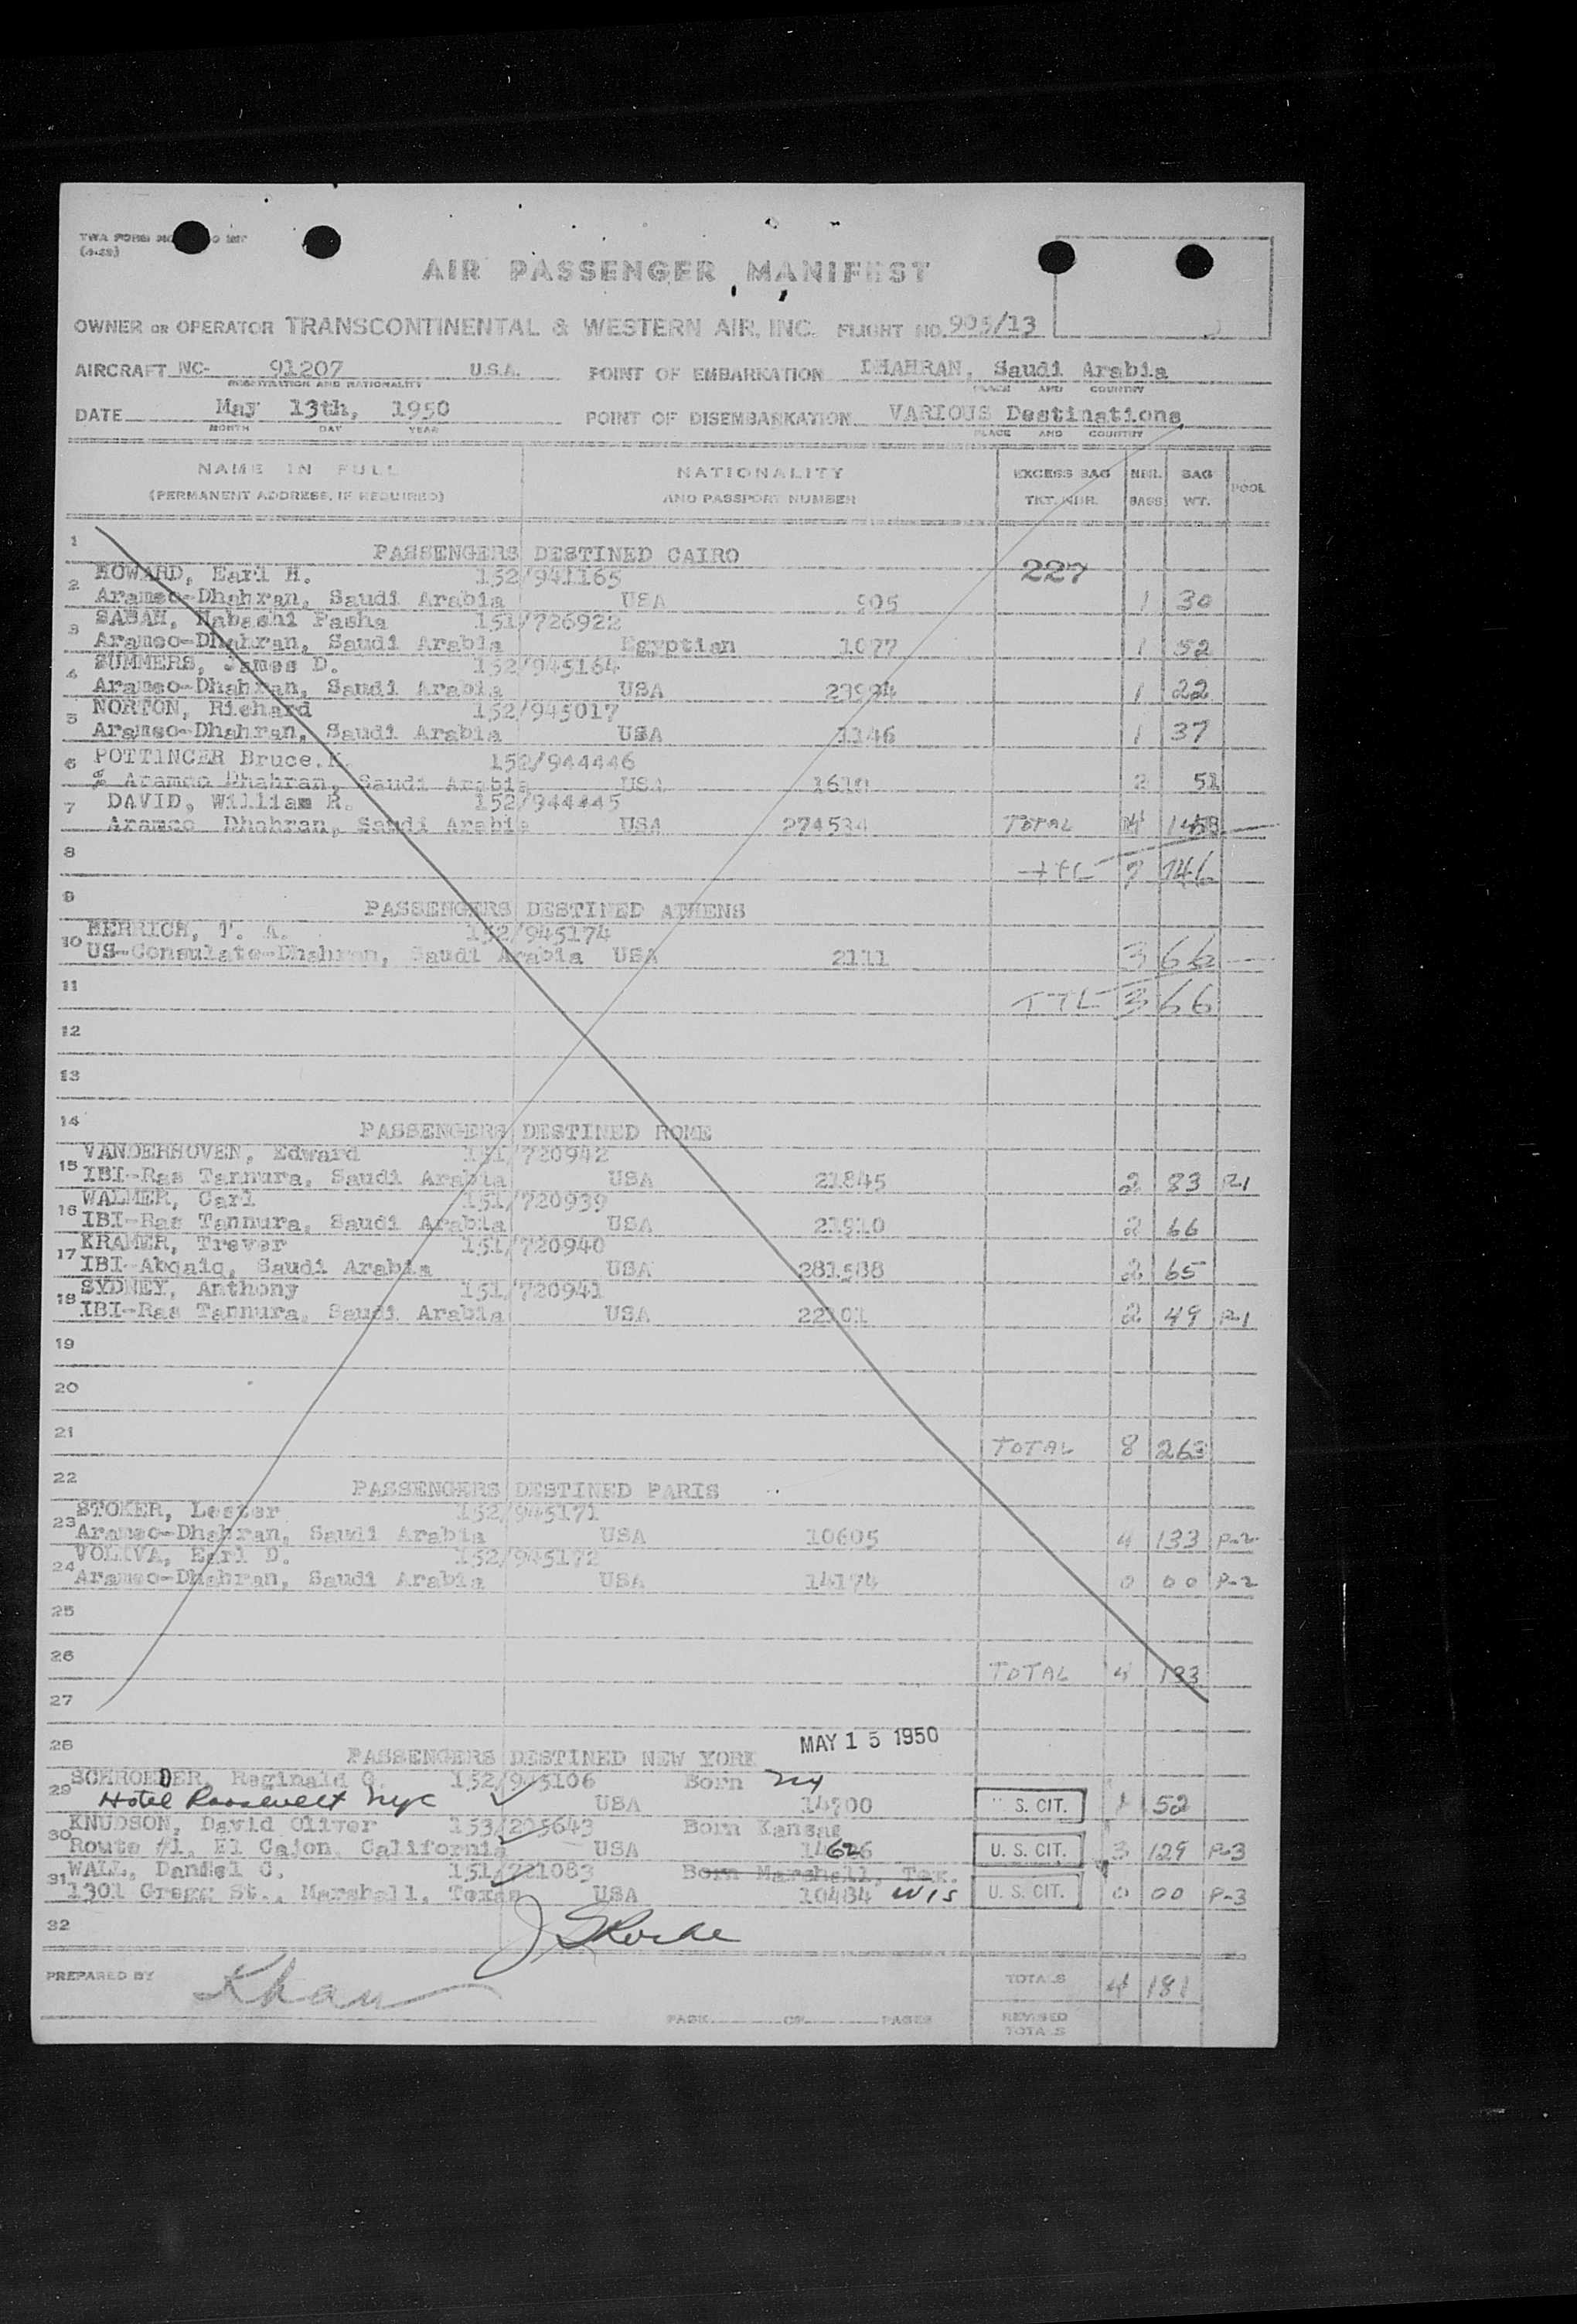 TWA FORM
(4-48)
AIR PASSENGER MANIFEST
OWNER OR OPERATOR TRANSCONTINENTAL & WESTERN AIR, INC. FLIGHT NO. 905/13
AIRCRAFT NC- 91207 U.S.A. POINT OF EMBARKATION DHAHRAN, Saudi Arabia
REGISTRATION AND NATIONALITY PLACE AND COUNTRY
DATE May 13th, 1950 POINT OF DISEMBARKATION VARIOUS Destinations
MONTH DAY YEAR PLACE AND COUNTRY
NAME IN FULL NATIONALITY EXCESS BAG NBR. BAG POOL
(PERMANENT ADDRESS, IF REQUIRED) AND PASSPORT NUMBER TKT. NBR. BAGS WT.
1 PASSENGERS DESTINED CAIRO
2 HOWARD, Earl H. 152/941165 227
Aramco-Dhahran, Saudi Arabia USA 905 1 30
3 SABAH, Habashi Pasha 151/726922
Aramco-Dhahran, Saudi Arabia Egyptian 1077 1 52
4 SUMMERS, James D. 152/945164
Aramco-Dhahran, Saudi Arabia USA 23994 1 22
5 NORTON, Richard 152/945017
Aramco-Dhahran, Saudi Arabia USA 1146 1 37
6 POTTINGER Bruce.K. 152/944446
% Aramco Dhahran, Saudi Arabia USA 1610 2 51
7 DAVID, William R. 152/944445
Aramco Dhahran, Saudi Arabia USA 274534 TOTAL
8 TTL
9 PASSENGERS DESTINED ATHENS
10 HERRICH, T. A. 152/945174
US-Consulate-Dhahran, Saudi Arabia USA 2111 3 66
11 TTL 3 66
12
13
14 PASSENGERS DESTINED ROME
15 VANDERHOVEN, Edward 151/720942
IBI-Ras Tannura, Saudi Arabia USA 21845 2 83 P-1
16 WALMER, Carl 151/720939
IBI-Ras Tannura, Saudi Arabia USA 21910 2 66
17 KRAMER, Trever 151/720940
IBI-Abqaiq, Saudi Arabia USA 281588 2 65
18 SYDNEY, Anthony 151/720941
IBI-Ras Tannura, Saudi Arabia USA 22101 2 49 P-1
19
20
21 TOTAL 8 263
22 PASSENGERS DESTINED PARIS
23 STOKER, Lester 152/945171
Aramco-Dhahran, Saudi Arabia USA 10605 4 133 P-2
24 VOLIVA, Earl D. 152/945172
Aramco-Dhahran, Saudi Arabia USA 14174 0 00 P-2
25
26 TOTAL 4 133
27
28 PASSENGERS DESTINED NEW YORK MAY 15 1950
29 SCHROEDER, Reginald G. 152/945106 Born NY
Hotel Roosevelt NYC USA 14700 S. CIT. 1 52
30 KNUDSON, David Oliver 153/205643 Born Kansas
Route #1, El Cajon, California USA 14626 U. S. CIT. 3 129 P-3
31 WALL, Daniel C. 151/721083 Born Marshall, Tex.
1301 Gregg St., Marshall, Texas USA 10484 WIS U. S. CIT. 0 00 P-3
32
PREPARED BY Khan TOTALS 4 181
PAGE OF PAGES REVISED
TOTALS